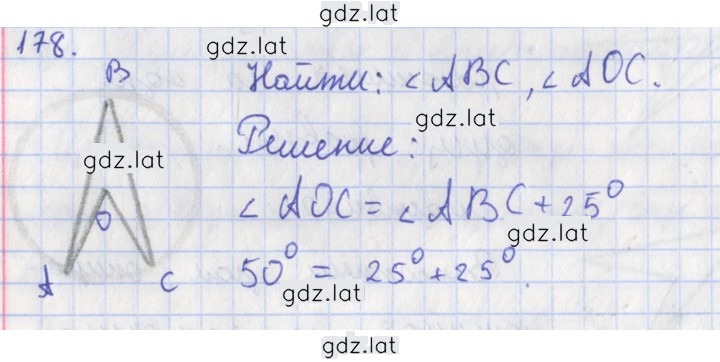 gdz.lat
178.
gdz.lat
B
Найти: ∠ABC, ∠AOC.
gdz.lat
Решение:
gdz.lat
O
∠AOC = ∠ABC + 25°
gdz.lat
A
C
50° = 25° + 25°.
gdz.lat
gdz.lat